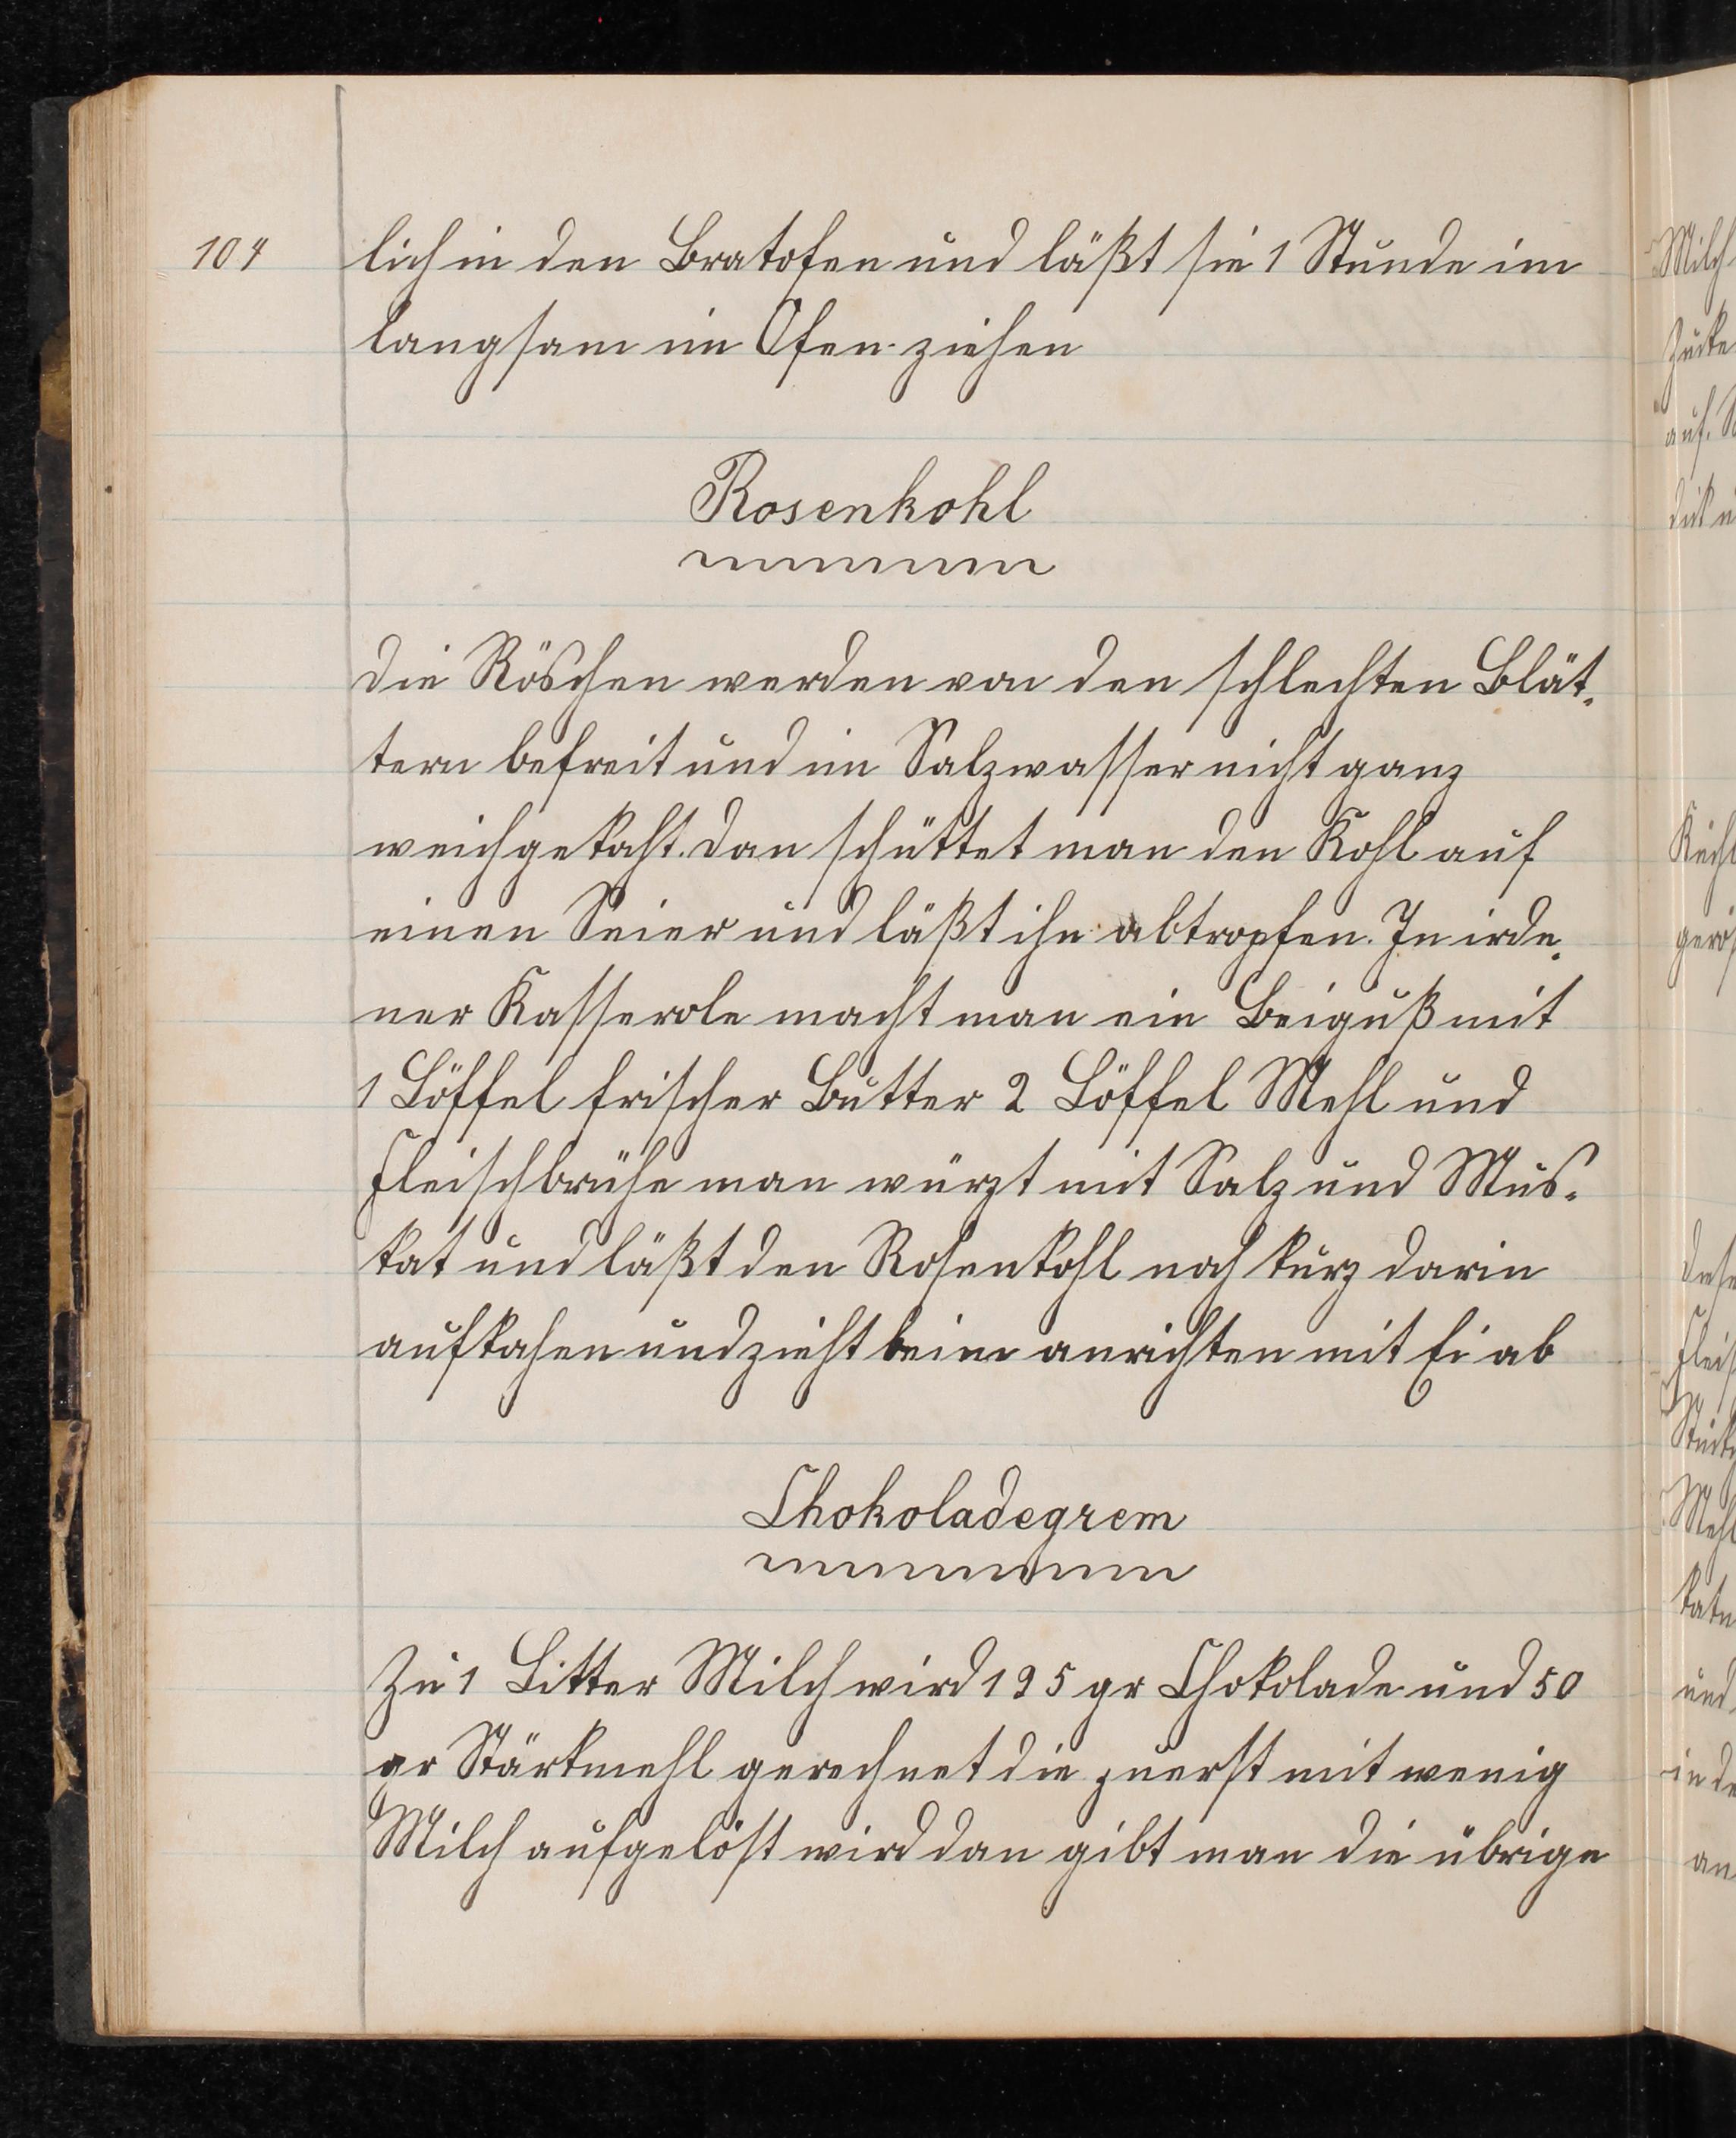 104
lich in den Bratofen und läßt sie 1 Stunde im
langsam im Ofen ziehen
Rosenkohl
die Röschen werden von den schlechten Blät-
tern befreit und im Salzwasser nicht ganz
weichgekocht. dan schüttet man den Kohl auf
einen Seier und läßt ihn abtropfen. In irde-
ner Kasserole macht man ein Beiguß mit
1 Löffel frischer Butter 2 Löffel Mehl und
Fleischbrühe man würzt mit Salz und Mus-
kat und läßt den Rosenkohl noch kurz darin
aufkochen und zieht beim anrichten mit Ei ab
Chokoladegrem
Zu 1 Litter Milch wird 125 gr Chokolade und 50
gr Stärkmehl gerechnet die zuerst mit wenig
Milch aufgelöst wird dan gibt man die übrige
Milch
auf.
und
in de